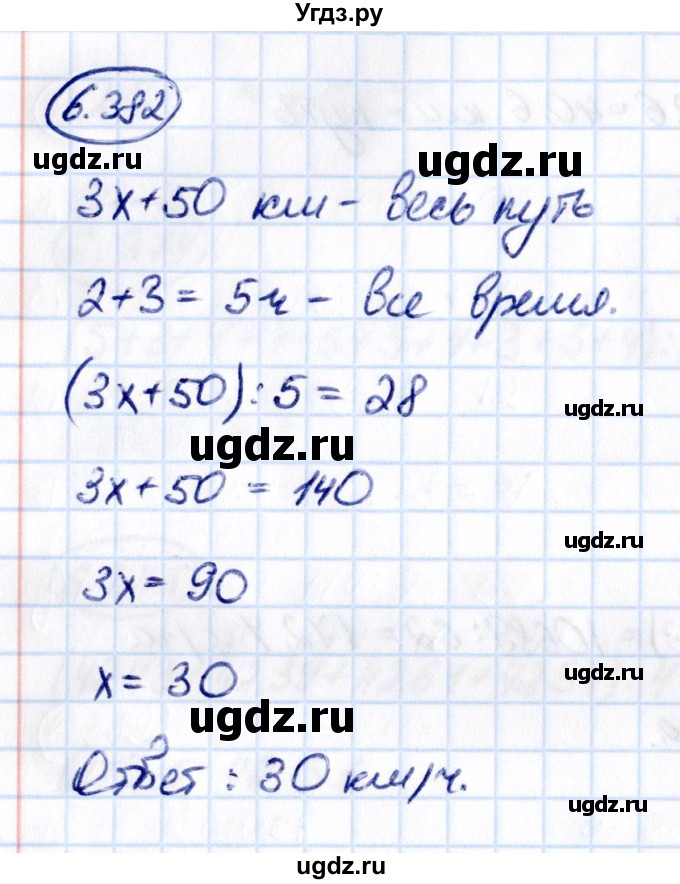 Угдз.ру
6.382
ugdz.ru
3x+50 км - весь путь
2+3= 5ч - все время.
(3x+50):5 = 28
ugdz.ru
ugdz.ru
3x+50 = 140
ugdz.ru
3x= 90
x= 30
ugdz.ru
ugdz.ru
Ответ: 30 км/ч.
ugdz.ru